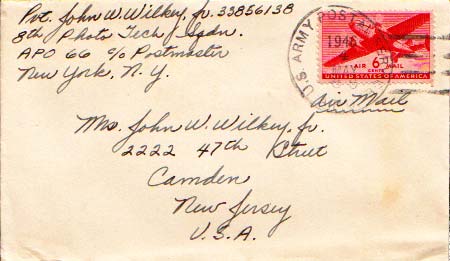 Pvt. John W. Wilkey, Jr. 33856138
8th Photo Tech / Sqdn.
APO 66 c/o Postmaster
New York, N.Y.
U.S. ARMY POSTAL
1946
MAY
AIR 6 MAIL
CENTS
UNITED STATES OF AMERICA
Air Mail
Mrs. John W. Wilkey, Jr.
2222 47th Street
Camden
New Jersey
U.S.A.